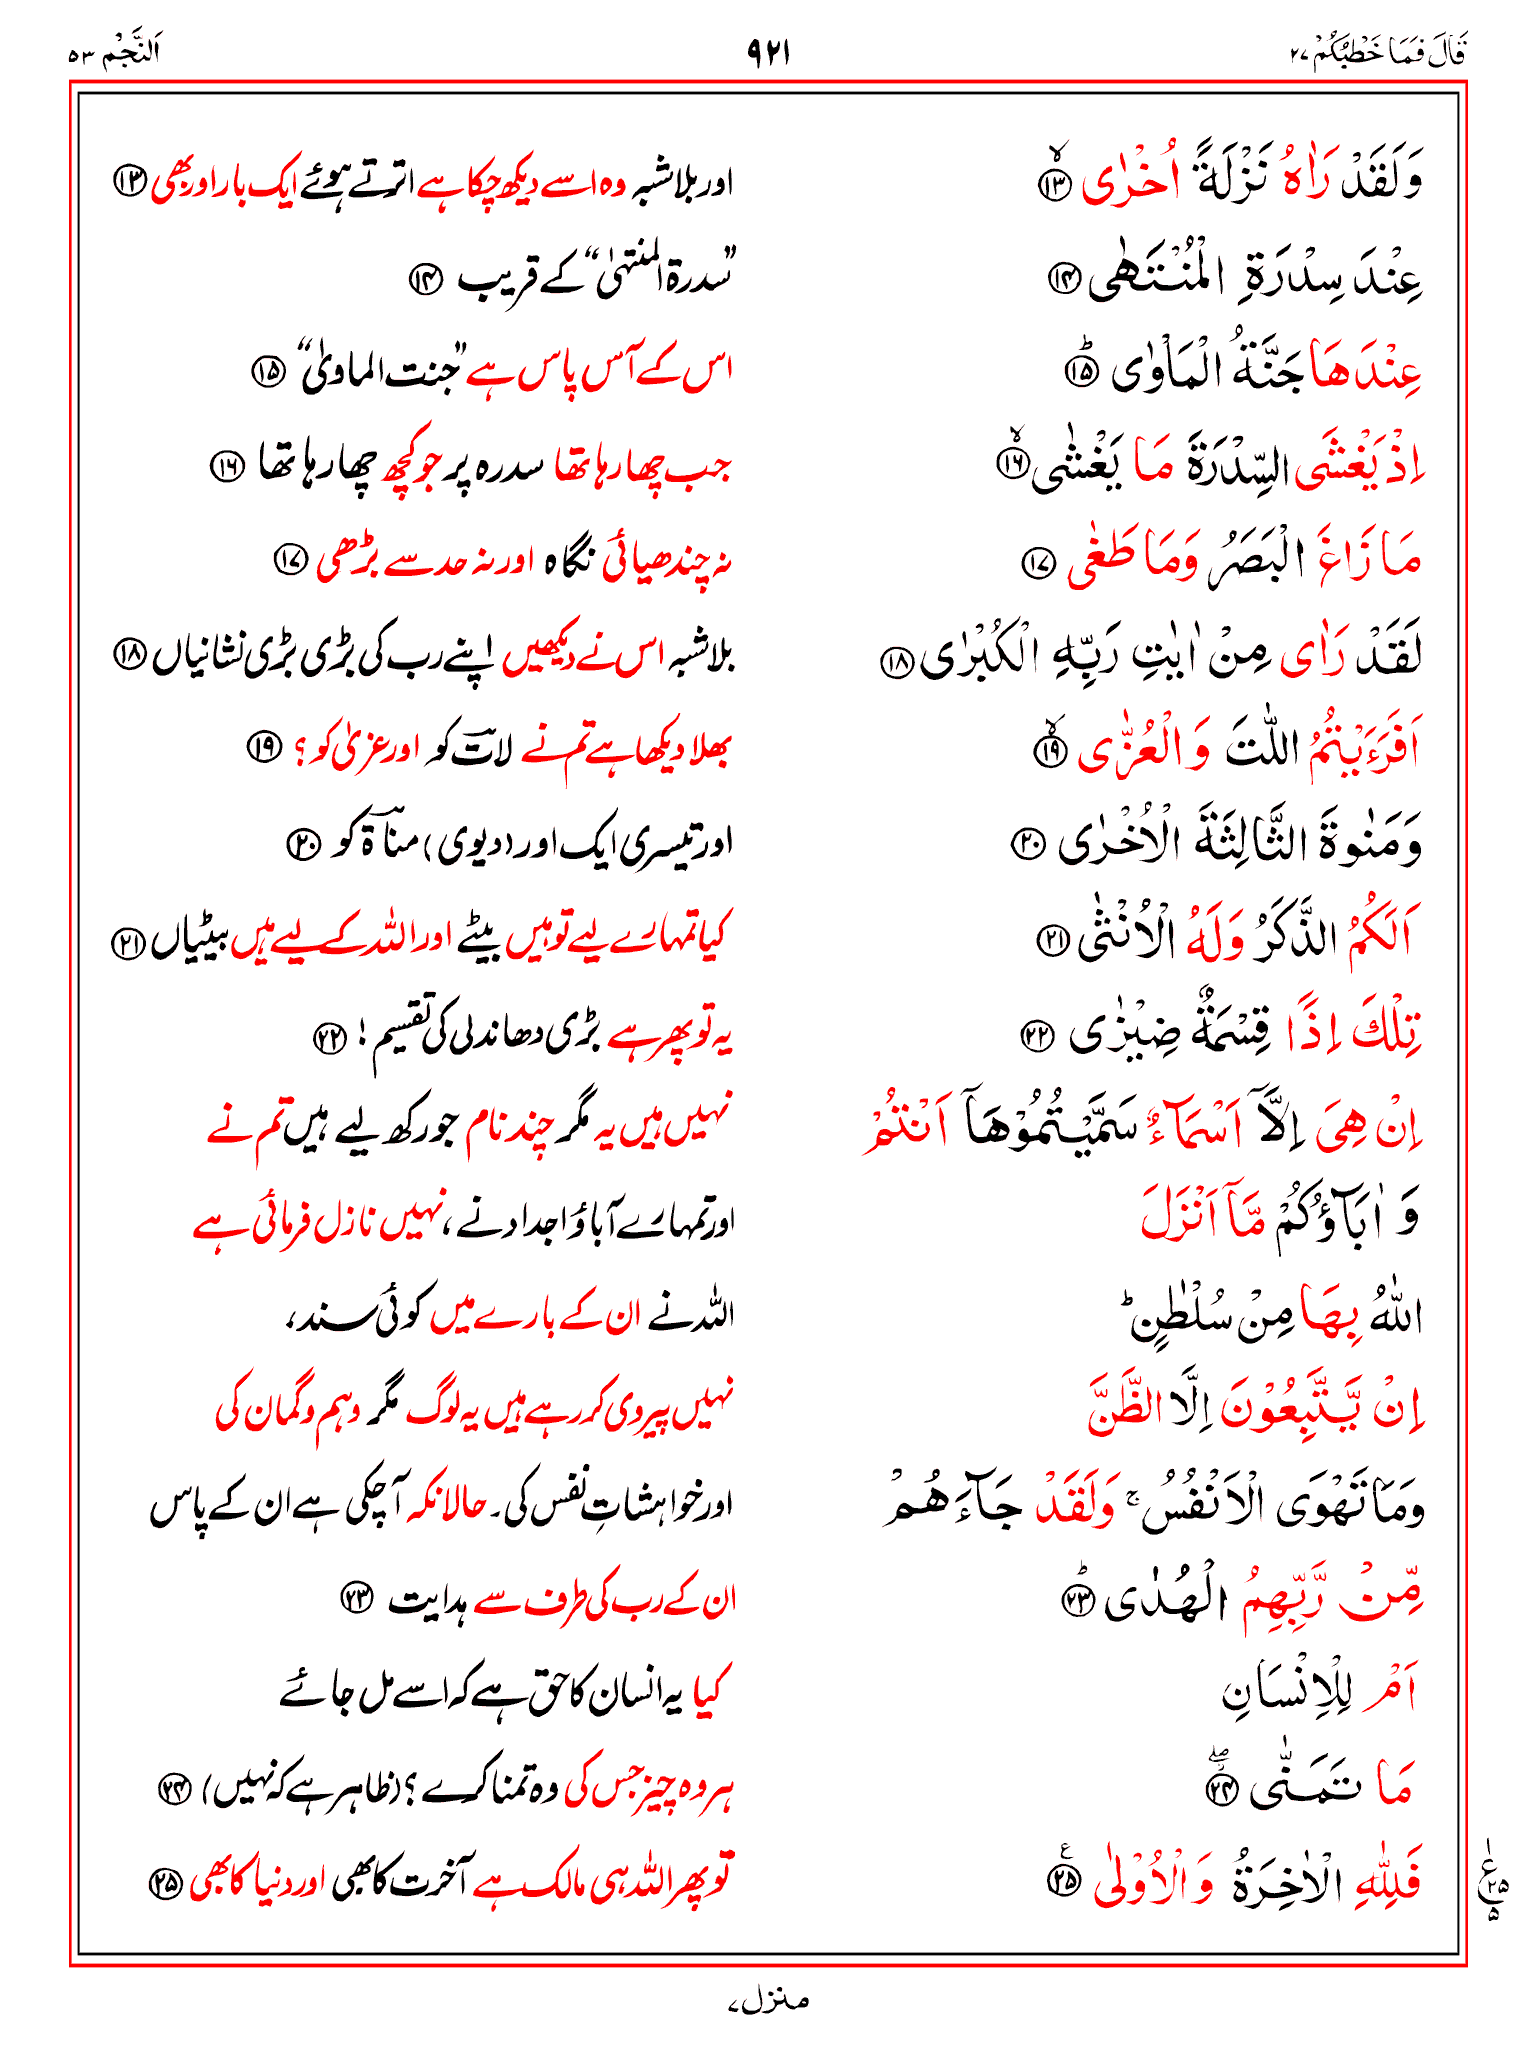 قَالَ فَمَا خَطْبُكُمْ ۲۷ ۹۲۱ اَلنَّجْم ۵۳
وَلَقَدْ رَاٰهُ نَزْلَةً اُخْرٰى ۙ﴿۱۳﴾ اور بلاشبہ وہ اسے دیکھ چکا ہے اترتے ہوئے ایک بار اور بھی ﴿۱۳﴾
عِنْدَ سِدْرَةِ الْمُنْتَهٰى ﴿۱۴﴾ ”سدرۃ المنتہیٰ“ کے قریب ﴿۱۴﴾
عِنْدَهَا جَنَّةُ الْمَاْوٰى ؕ﴿۱۵﴾ اس کے آس پاس ہے ”جنت الماویٰ“ ﴿۱۵﴾
اِذْ يَغْشَى السِّدْرَةَ مَا يَغْشٰى ۙ﴿۱۶﴾ جب چھا رہا تھا سدرہ پر جو کچھ چھا رہا تھا ﴿۱۶﴾
مَا زَاغَ الْبَصَرُ وَمَا طَغٰى ﴿۱۷﴾ نہ چندھیائی نگاہ اور نہ حد سے بڑھی ﴿۱۷﴾
لَقَدْ رَاٰى مِنْ اٰيٰتِ رَبِّهِ الْكُبْرٰى ﴿۱۸﴾ بلاشبہ اس نے دیکھیں اپنے رب کی بڑی بڑی نشانیاں ﴿۱۸﴾
اَفَرَءَيْتُمُ اللّٰتَ وَالْعُزّٰى ۙ﴿۱۹﴾ بھلا دیکھا ہے تم نے لات کو اور عزیٰ کو؟ ﴿۱۹﴾
وَمَنٰوةَ الثَّالِثَةَ الْاُخْرٰى ﴿۲۰﴾ اور تیسری ایک اور (دیوی) مناۃ کو ﴿۲۰﴾
اَلَكُمُ الذَّكَرُ وَلَهُ الْاُنْثٰى ﴿۲۱﴾ کیا تمہارے لیے تو ہیں بیٹے اور اللہ کے لیے ہیں بیٹیاں ﴿۲۱﴾
تِلْكَ اِذًا قِسْمَةٌ ضِيْزٰى ﴿۲۲﴾ یہ تو پھر ہے بڑی دھاندلی کی تقسیم! ﴿۲۲﴾
اِنْ هِىَ اِلَّاۤ اَسْمَآءٌ سَمَّيْتُمُوْهَاۤ اَنْتُمْ نہیں ہیں یہ مگر چند نام جو رکھ لیے ہیں تم نے
وَ اٰبَآؤُكُمْ مَّاۤ اَنْزَلَ اور تمہارے آباؤ اجداد نے، نہیں نازل فرمائی ہے
اللّٰهُ بِهَا مِنْ سُلْطٰنٍ ؕ اللہ نے ان کے بارے میں کوئی سند،
اِنْ يَّتَّبِعُوْنَ اِلَّا الظَّنَّ نہیں پیروی کر رہے ہیں یہ لوگ مگر وہم و گمان کی
وَمَا تَهْوَى الْاَنْفُسُ ۚ وَلَقَدْ جَآءَهُمْ اور خواہشاتِ نفس کی۔ حالانکہ آ چکی ہے ان کے پاس
مِّنْ رَّبِّهِمُ الْهُدٰى ؕ﴿۲۳﴾ ان کے رب کی طرف سے ہدایت ﴿۲۳﴾
اَمْ لِلْاِنْسَانِ کیا یہ انسان کا حق ہے کہ اسے مل جائے
مَا تَمَنّٰى ۖ﴿۲۴﴾ ہر وہ چیز جس کی وہ تمنا کرے؟ (ظاہر ہے کہ نہیں) ﴿۲۴﴾
فَلِلّٰهِ الْاٰخِرَةُ وَالْاُوْلٰى ﴿۲۵﴾ تو پھر اللہ ہی مالک ہے آخرت کا بھی اور دنیا کا بھی ﴿۲۵﴾
ع ۲۵ ۵
منزل ۷